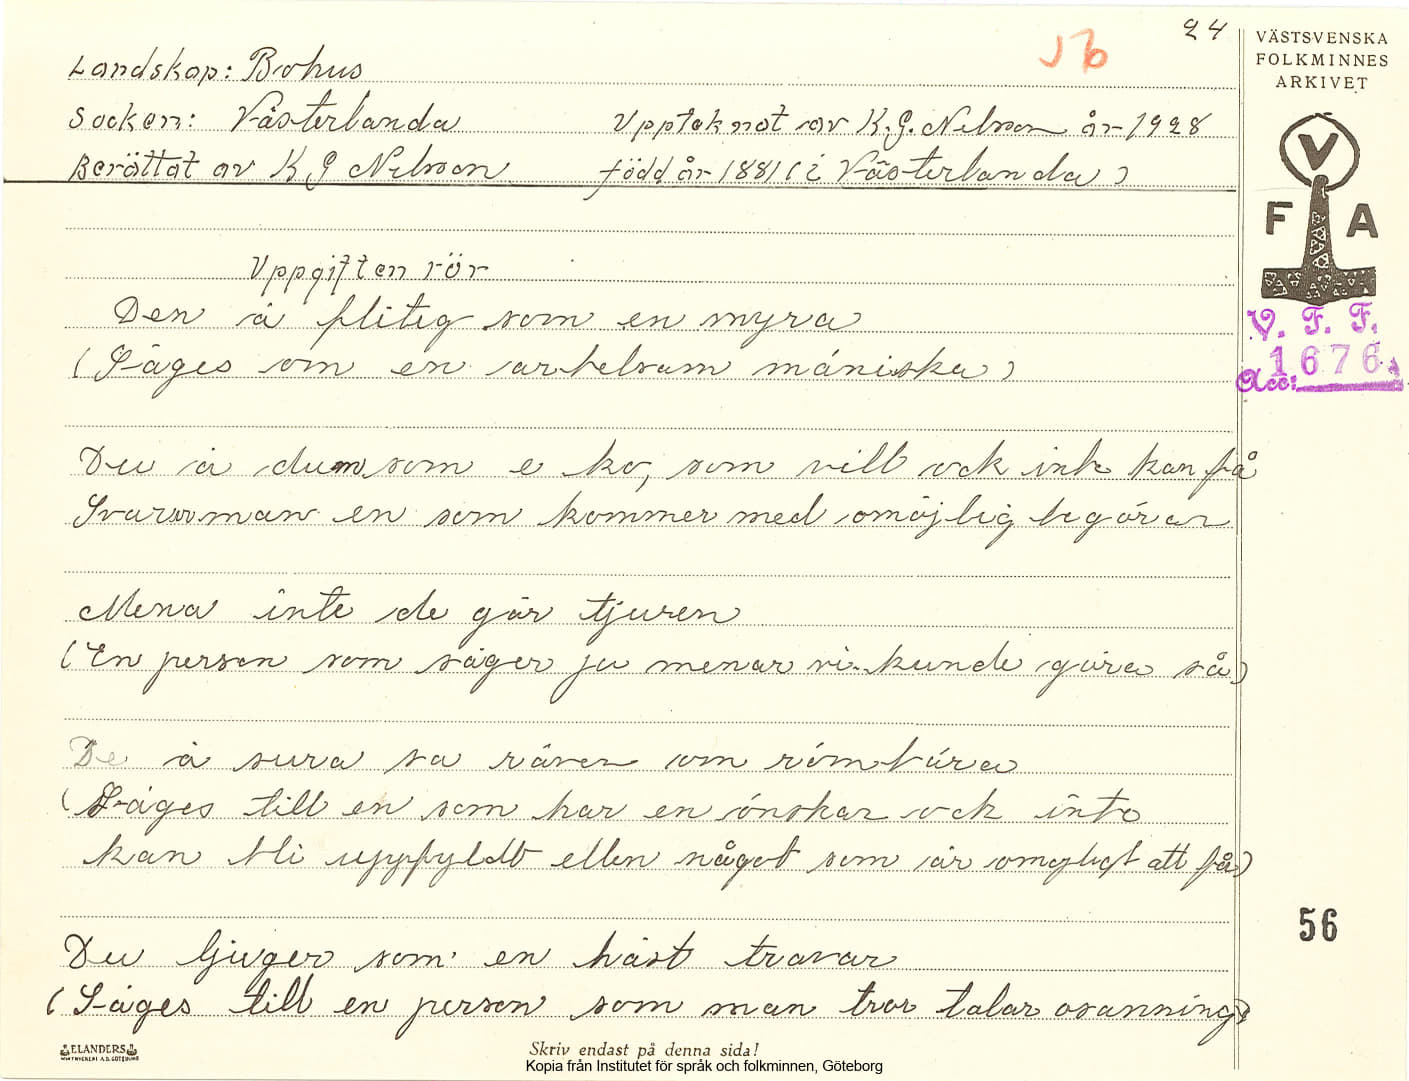 24
J b
VÄSTSVENSKA
FOLKMINNES
ARKIVET
Landskap: Bohus
Socken: Västerlanda Upptecknat av K. G. Nelson år 1928
Berättat av K G Nelson född år 1881 (i Västerlanda)
V
F A
V. F. F.
Acc: 1676
Uppgiften rör
Den ä flitig som en myra
(Säges om en arbetsam mäniska)
Du ä dum som e ko, som vill ock inte kan få
Svarar man en som kommer med omöjlig begäran
Mena inte de gör tjuren
(En person som säger ja menar vi kunde göra så)
De ä sura sa räven om römbära
(Säges till en som har en önskan ock inte
kan bli uppfyldt eller något som är omöjligt att få)
56
Du ljuger som en häst travar
(Säges till en person som man tror talar osanning)
ELANDERS
Skriv endast på denna sida!
Kopia från Institutet för språk och folkminnen, Göteborg